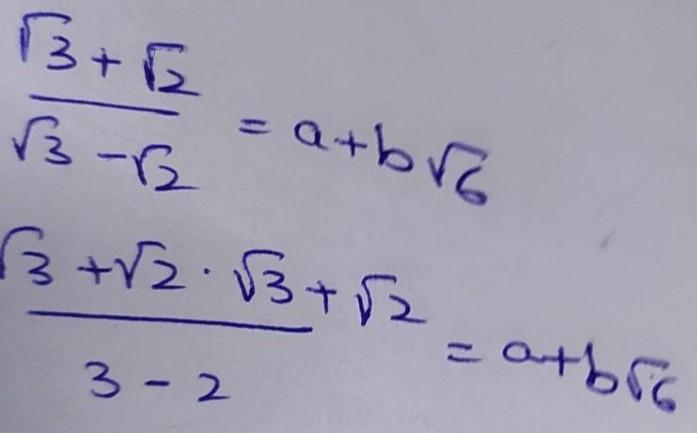 (√3 + √2) / (√3 - √2) = a + b√6
(√3 + √2 · √3 + √2) / (3 - 2) = a + b√6